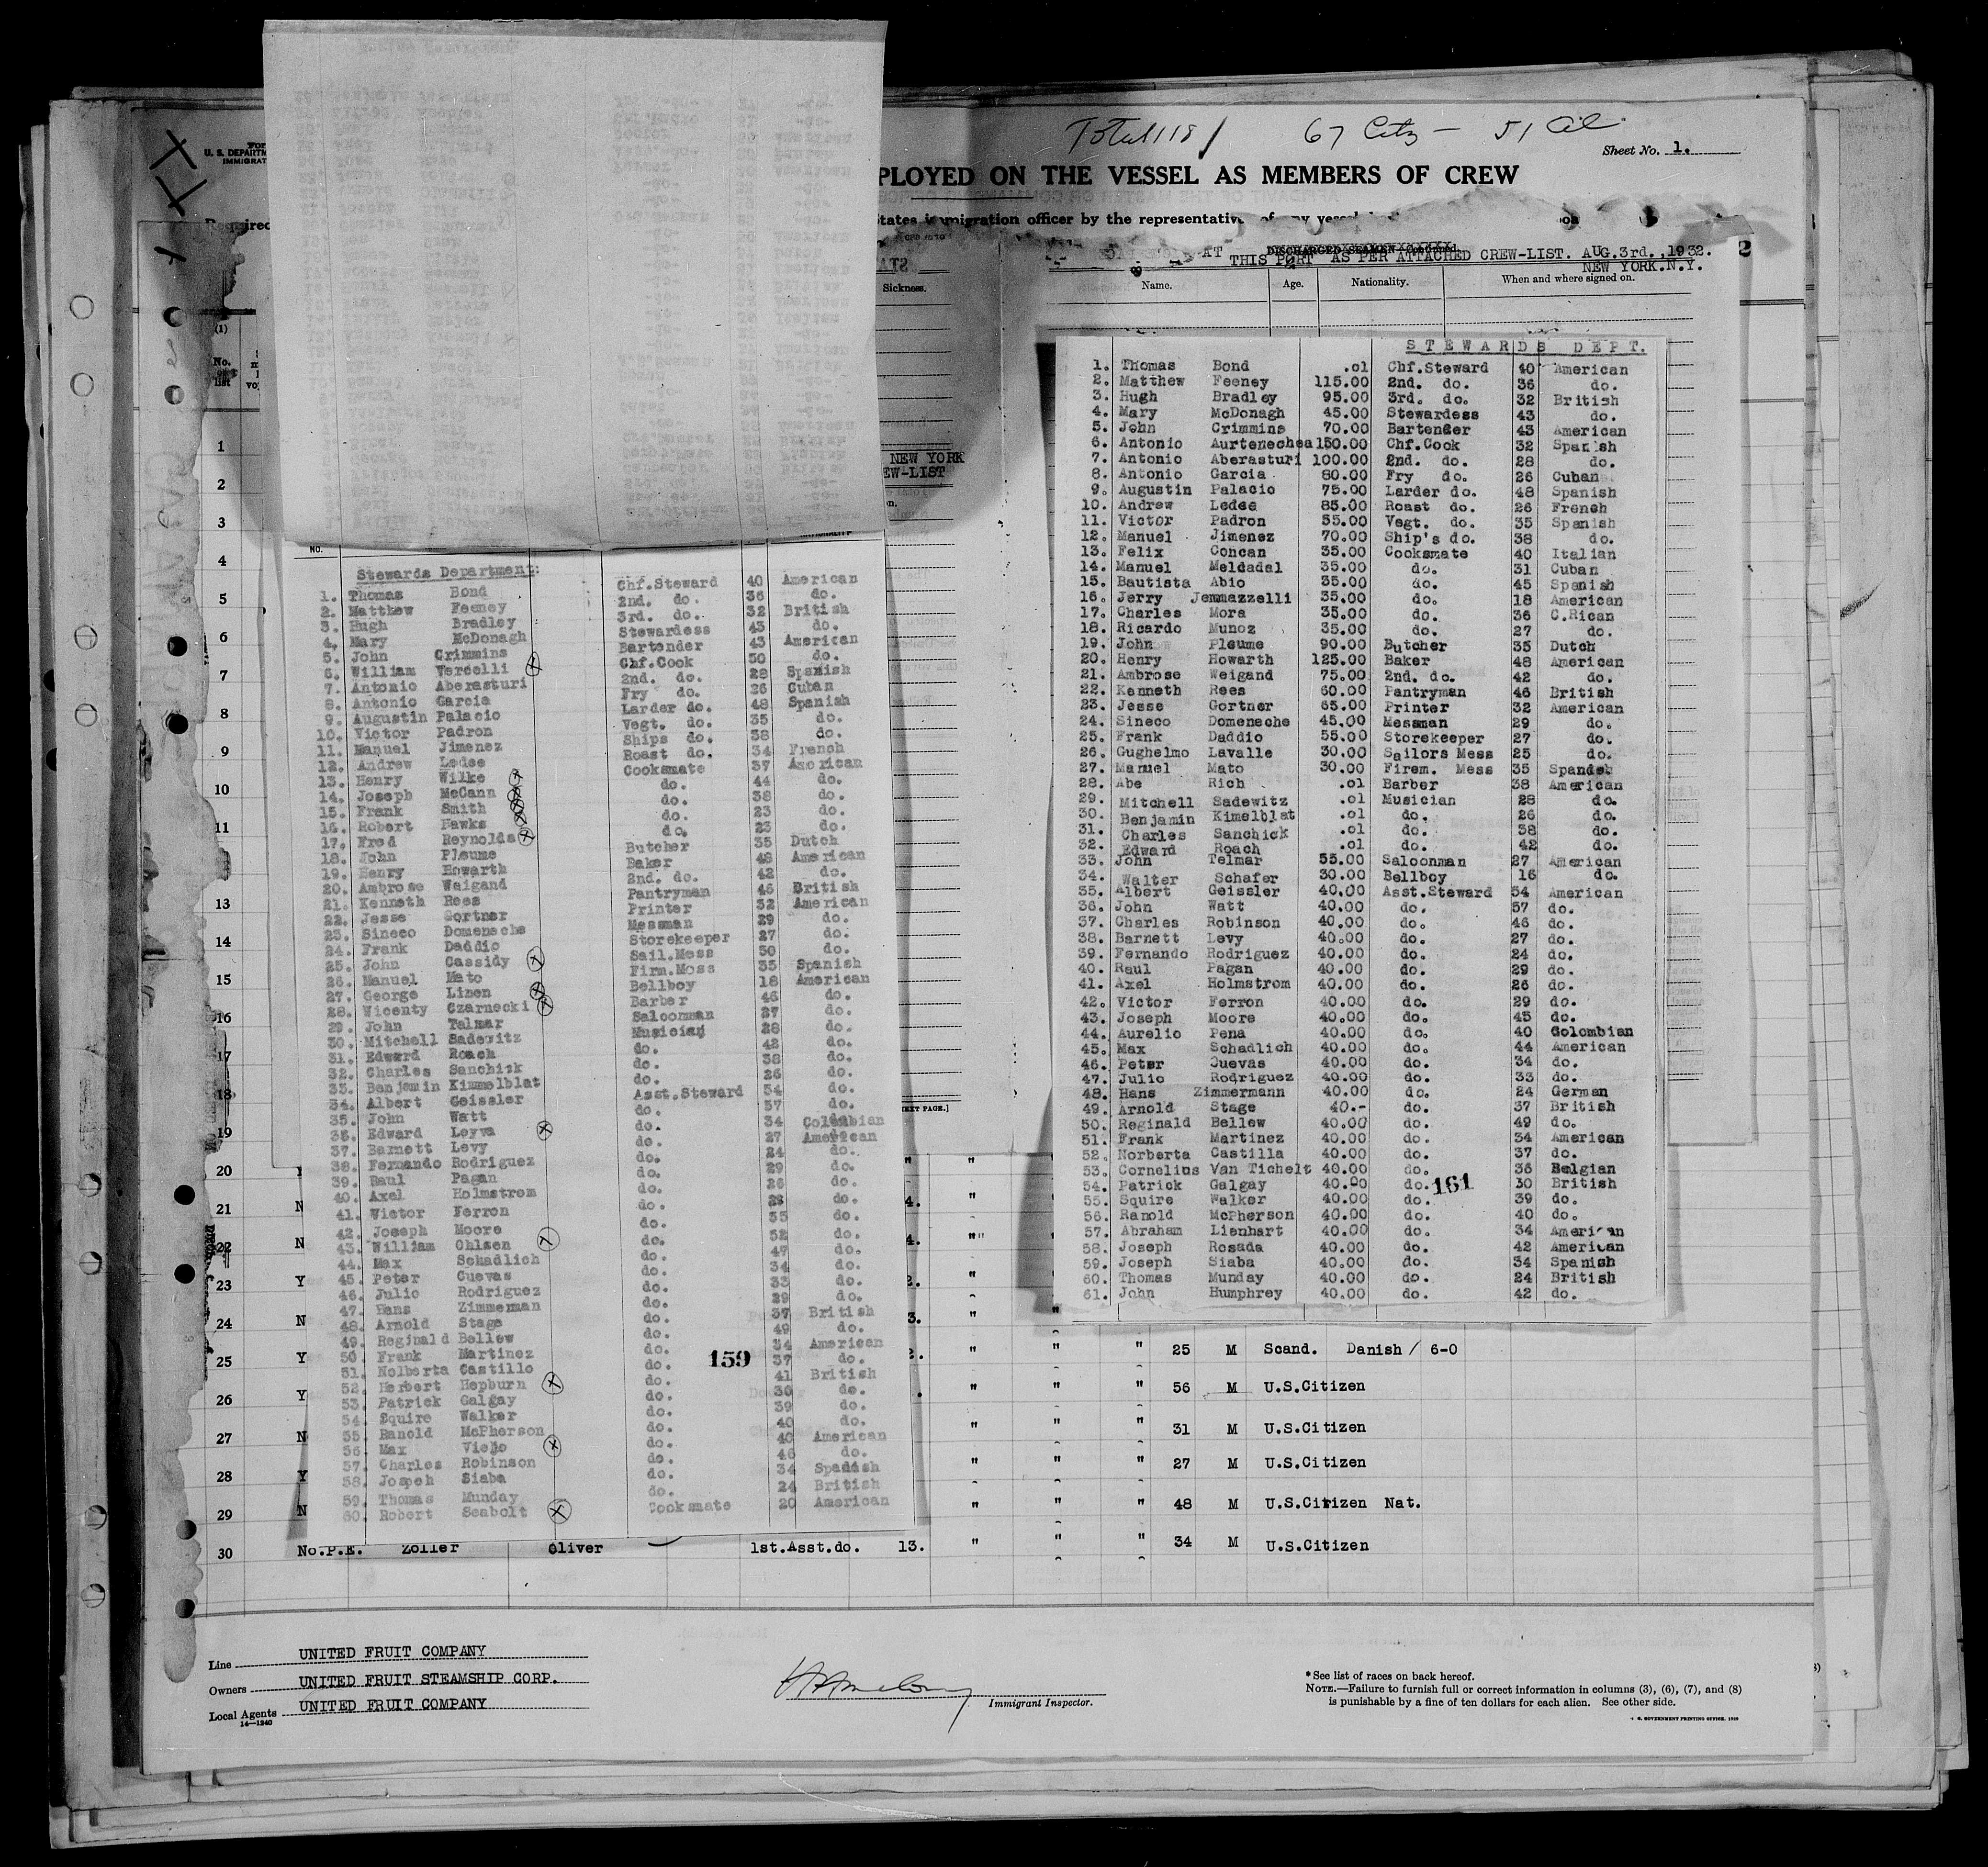 Total 118 / 67 Citz — 51 Al.
Sheet No. 1.
U. S. DEPARTM
IMMIGRAT
PLOYED ON THE VESSEL AS MEMBERS OF CREW
Required
States immigration officer by the representative of any vessel
AT DISCHARGED SEAMEN
THIS PORT AS PER ATTACHED CREW-LIST. AUG.3rd.,1932.
NEW YORK.N.Y.
2
Sickness.
Name. Age. Nationality. When and where signed on.
(1)
No. on list
NEW YORK
EW-LIST
NO.
Stewards Department:
1. Thomas Bond Chf.Steward 40 American
2. Matthew Feeney 2nd. do. 36 do.
3. Hugh Bradley 3rd. do. 32 British
4. Mary McDonagh Stewardess 43 do.
5. John Crimmins Bartender 43 American
6. William Vercelli Chf.Cook 50 do.
7. Antonio Aberasturi 2nd. do. 28 Spanish
8. Antonio Garcia Fry do. 26 Cuban
9. Augustin Palacio Larder do. 48 Spanish
10. Victor Padron Vegt. do. 35 do.
11. Manuel Jimenez Ships do. 38 do.
12. Andrew Ledee Roast do. 34 French
13. Henry Wilke Cooksmate 37 American
14. Joseph McCann do. 44 do.
15. Frank Smith do. 38 do.
16. Robert Hawks do. 23 do.
17. Fred Reynolds do. 23 do.
18. John Pleume Butcher 35 Dutch
19. Henry Howarth Baker 48 American
20. Ambrose Waigand 2nd. do. 42 do.
21. Kenneth Rees Pantryman 46 British
22. Jesse Gortner Printer 32 American
23. Sineco Domenech Messman 29 do.
24. Frank Daddio Storekeeper 27 do.
25. John Cassidy Sail.Mess 50 do.
26. Manuel Mato Firm.Mess 35 Spanish
27. George Linen Bellboy 18 American
28. Wicenty Czarnecki Barber 46 do.
29. John Talmar Saloonman 27 do.
30. Mitchell Sadewitz Musician 28 do.
31. Edward Roach do. 42 do.
32. Charles Sanchik do. 38 do.
33. Benjamin Kimmelblat do. 26 do.
34. Albert Geissler Asst.Steward 54 do.
35. John Watt do. 57 do.
36. Edward Leyva do. 34 Colombian
37. Barnett Levy do. 27 American
38. Fernando Rodriguez do. 24 do.
39. Raul Pagan do. 29 do.
40. Axel Holmstrom do. 26 do.
41. Victor Ferron do. 28 do.
42. Joseph Moore do. 55 do.
43. William Ohlsen do. 52 do.
44. Max Schadlich do. 47 do.
45. Peter Cuevas do. 34 do.
46. Julio Rodriguez do. 33 do.
47. Hans Zimmerman do. 29 do.
48. Arnold Stage do. 37 British
49. Reginald Bellew do. 49 do.
50. Frank Martinez do. 34 American
51. Nolberta Castillo do. 37 do.
52. Herbert Hepburn do. 41 British
53. Patrick Galgay do. 30 do.
54. Squire Walker do. 39 do.
55. Ranold McPherson do. 40 do.
56. Max Viejo do. 40 American
57. Charles Robinson do. 46 do.
58. Jospeh Siaba do. 34 Spanish
59. Thomas Munday do. 24 British
60. Robert Seabolt Cooksmate 20 American
159
STEWARDS DEPT.
1. Thomas Bond .01 Chf.Steward 40 American
2. Matthew Feeney 115.00 2nd. do. 36 do.
3. Hugh Bradley 95.00 3rd. do. 32 British
4. Mary McDonagh 45.00 Stewardess 43 do.
5. John Crimmins 70.00 Bartender 43 American
6. Antonio Aurtenechea 150.00 Chf.Cook 32 Spanish
7. Antonio Aberasturi 100.00 2nd. do. 28 do.
8. Antonio Garcia 80.00 Fry do. 26 Cuban
9. Augustin Palacio 75.00 Larder do. 48 Spanish
10. Andrew Ledee 85.00 Roast do. 26 French
11. Victor Padron 55.00 Vegt. do. 35 Spanish
12. Manuel Jimenez 70.00 Ship's do. 38 do.
13. Felix Concan 35.00 Cooksmate 40 Italian
14. Manuel Meldadal 35.00 do. 31 Cuban
15. Bautista Abio 35.00 do. 45 Spanish
16. Jerry Jemmazzelli 35.00 do. 18 American
17. Charles Mora 35.00 do. 36 C.Rican
18. Ricardo Munoz 35.00 do. 27 do.
19. John Pleume 90.00 Butcher 35 Dutch
20. Henry Howarth 125.00 Baker 48 American
21. Ambrose Weigand 75.00 2nd. do. 42 do.
22. Kenneth Rees 60.00 Pantryman 46 British
23. Jesse Gortner 65.00 Printer 32 American
24. Sineco Domeneche 45.00 Messman 29 do.
25. Frank Daddio 55.00 Storekeeper 27 do.
26. Gughelmo Lavalle 30.00 Sailors Mess 25 do.
27. Manuel Mato 30.00 Firem. Mess 35 Spanish
28. Abe Rich .01 Barber 38 American
29. Mitchell Sadewitz .01 Musician 28 do.
30. Benjamin Kimelblat .01 do. 26 do.
31. Charles Sanchick .01 do. 38 do.
32. Edward Roach .01 do. 42 do.
33. John Telmar 55.00 Saloonman 27 American
34. Walter Schafer 30.00 Bellboy 16 do.
35. Albert Geissler 40.00 Asst.Steward 54 American
36. John Watt 40.00 do. 57 do.
37. Charles Robinson 40.00 do. 46 do.
38. Barnett Levy 40.00 do. 27 do.
39. Fernando Rodriguez 40.00 do. 24 do.
40. Raul Pagan 40.00 do. 29 do.
41. Axel Holmstrom 40.00 do. 26 do.
42. Victor Ferron 40.00 do. 29 do.
43. Joseph Moore 40.00 do. 45 do.
44. Aurelio Pena 40.00 do. 40 Colombian
45. Max Schadlich 40.00 do. 44 American
46. Peter Cuevas 40.00 do. 34 do.
47. Julio Rodriguez 40.00 do. 33 do.
48. Hans Zimmermann 40.00 do. 24 German
49. Arnold Stage 40.- do. 37 British
50. Reginald Bellew 40.00 do. 49 do.
51. Frank Martinez 40.00 do. 34 American
52. Norberta Castilla 40.00 do. 37 do.
53. Cornelius Van Tichelt 40.00 do. 36 Belgian
54. Patrick Galgay 40.00 do. 30 British
55. Squire Walker 40.00 do. 39 do.
56. Ranold McPherson 40.00 do. 40 do.
57. Abraham Lienhart 40.00 do. 34 American
58. Joseph Rosada 40.00 do. 42 American
59. Joseph Siaba 40.00 do. 34 Spanish
60. Thomas Munday 40.00 do. 24 British
61. John Humphrey 40.00 do. 42 do.
161
EXT PAGE.]
1
2
3
4
5
6
7
8
9
10
11
13
14
15
16
17
18
19
20
21 N
22 N
23 Y
24 N
25 Y " " " 25 M Scand. Danish / 6-0
26 Y " " " 56 M U.S.Citizen
27 N " " " 31 M U.S.Citizen
28 Y " " " 27 M U.S.Citizen
29 N " " " 48 M U.S.Citizen Nat.
30 No.P.E. Zoller Oliver 1st.Asst.do. 13. " " " 34 M U.S.Citizen
Line UNITED FRUIT COMPANY
Owners UNITED FRUIT STEAMSHIP CORP.
Local Agents UNITED FRUIT COMPANY
14—1240
Immigrant Inspector.
*See list of races on back hereof.
NOTE.—Failure to furnish full or correct information in columns (3), (6), (7), and (8)
is punishable by a fine of ten dollars for each alien. See other side.
GOVERNMENT PRINTING OFFICE. 1929